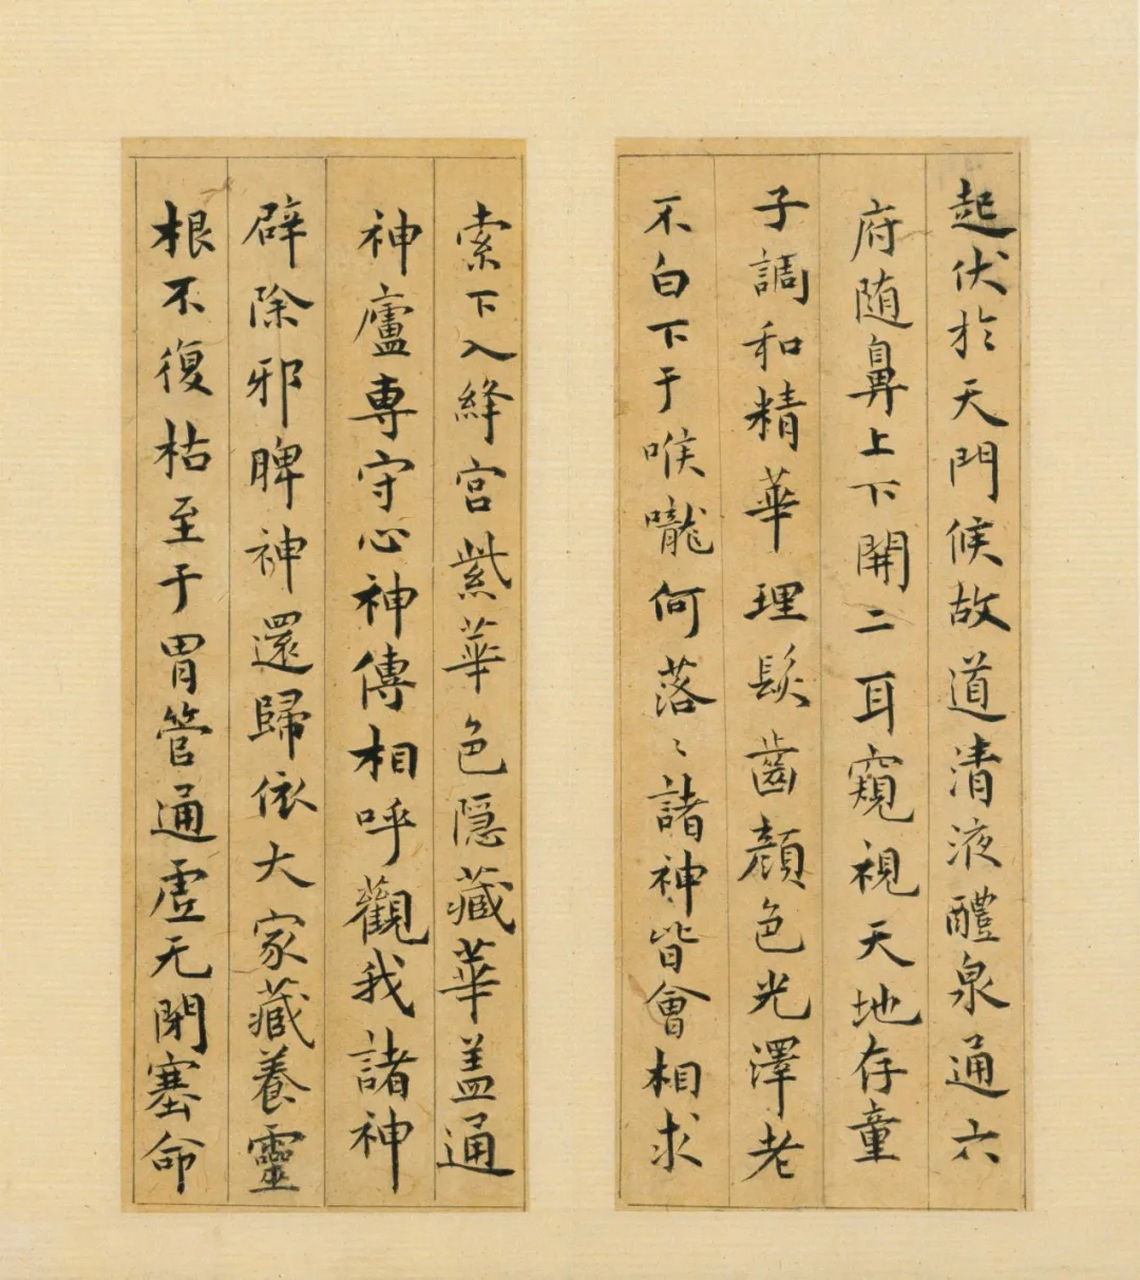 起伏於天門候故道清液醴泉通六
府随鼻上下開二耳窺視天地存童
子調和精華理髮齒顔色光澤老
不白下于喉嚨何落〻諸神皆會相求
索下入絳宫紫華色隠藏華盖通
神廬專守心神傳相呼觀我諸神
辟除邪脾神還歸依大家藏養靈
根不復枯至于胃管通虚无閉塞命